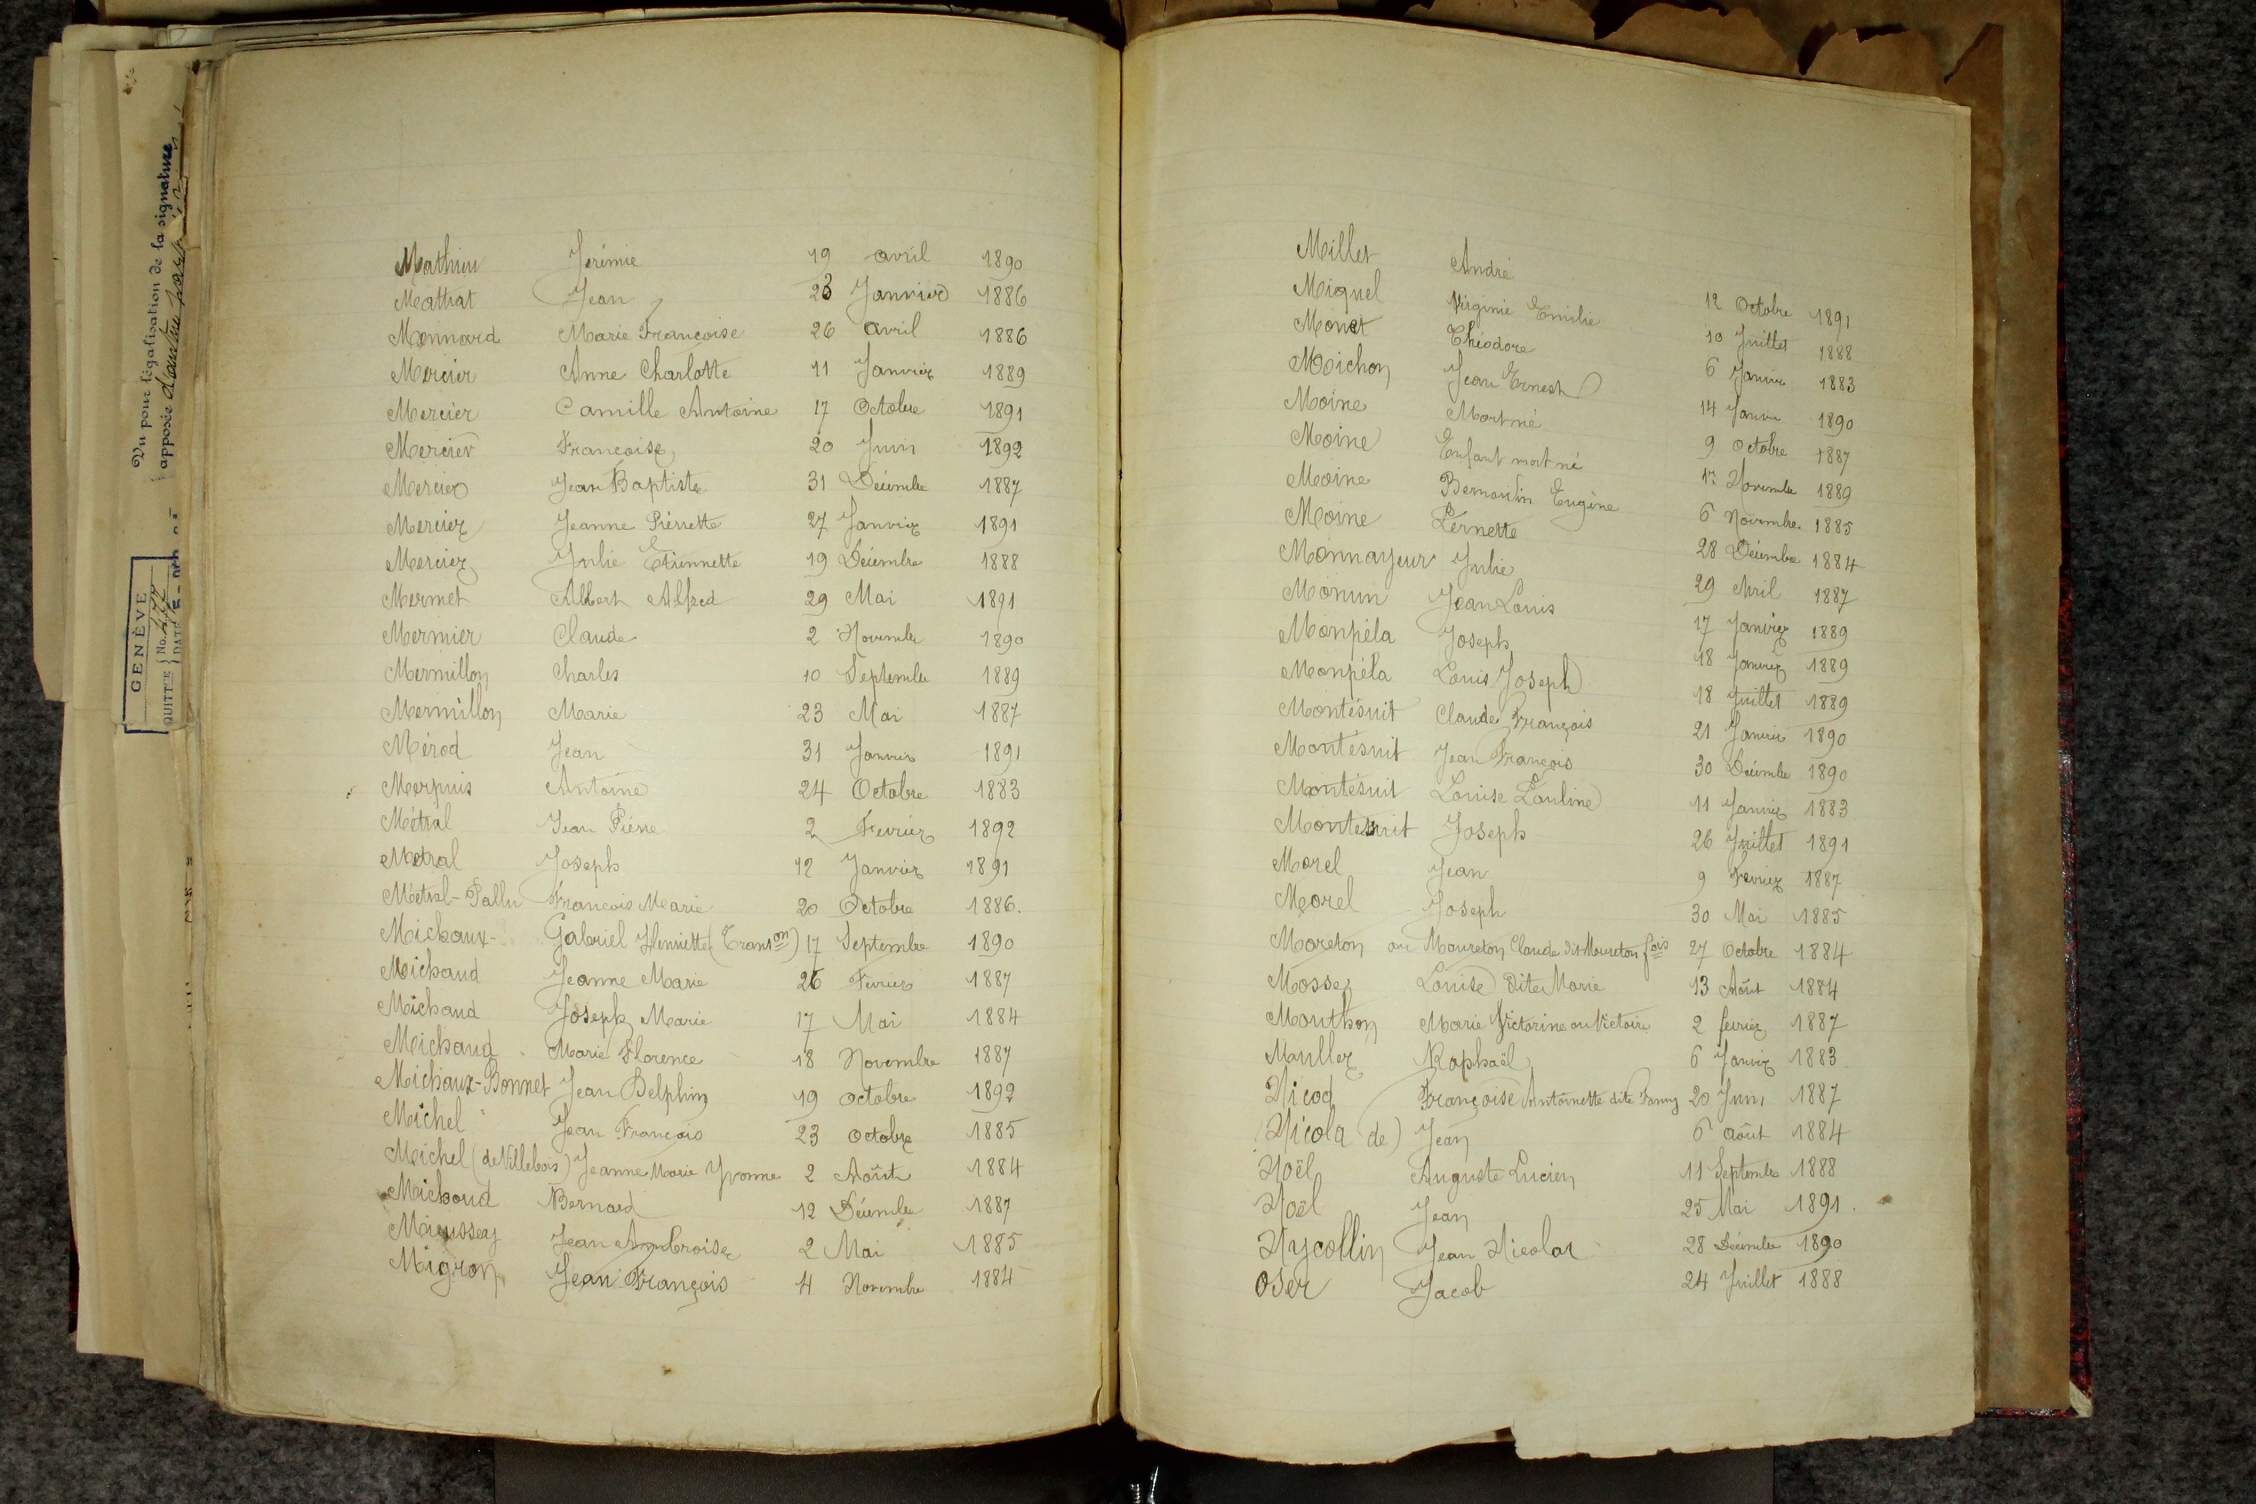 Vu pour légalisation de la signature
apposée d'autre part
GENÈVE
QUITT'E No.
DATE
Mathieu Jérémie 19 avril 1890
Mattrat Jean 23 Janvier 1886
Monnard Marie Françoise 26 avril 1886
Mercier Anne Charlotte 11 Janvier 1889
Mercier Camille Antoine 17 Octobre 1891
Mercier Françoise 20 Juin 1892
Mercier Jean Baptiste 31 Décembre 1887
Mercier Jeanne Pierrette 27 Janvier 1891
Mercier Julie Etiennette 19 Décembre 1888
Mermet Albert Alfred 29 Mai 1891
Mermier Claude 2 Novembre 1890
Mermillon Charles 10 Septembre 1889
Mermillon Marie 23 Mai 1887
Mérod Jean 31 Janvier 1891
Merpuis Antoine 24 Octobre 1883
Métral Jean Pierre 2 Fevrier 1892
Metral Joseph 12 Janvier 1891
Métral-Pallu François Marie 20 Octobre 1886.
Michaux- Gabriel Henriette (Transon) 17 Septembre 1890
Michaud Jeanne Marie 26 Fevrier 1887
Michaud Joseph Marie 17 Mai 1884
Michaud Marie Florence 18 Novembre 1887
Michaux-Bonnet Jean Delphin 19 octobre 1892
Michel Jean François 23 octobre 1885
Michel (de Villebois) Jeanne Marie Yvonne 2 Août 1884
Michoud Bernard 12 Décembre 1887
Mieussey Jean Ambroise 2 Mai 1885
Migron Jean François 4 Novembre 1884
Millet André 12 Octobre 1891
Miquel Virginie Emilie 10 Juillet 1888
Monet Théodore 6 Janvier 1883
Moichon Jean Ernest 14 Janvier 1890
Moine Mort né 9 octobre 1887
Moine Enfant mort né Novembre 1889
Moine Bernardin Eugène 6 Novembre 1885
Moine Pernette 28 Décembre 1884
Monnayeur Julie 29 Avril 1887
Monun Jean Louis 17 Janvier 1889
Monpéla Joseph 18 Janvier 1889
Monpéla Louis Joseph 18 Juillet 1889
Montésuit Claude François 21 Janvier 1890
Montésuit Jean François 30 Décembre 1890
Montésuit Louise Pauline 11 Janvier 1883
Montésuit Joseph 26 Juillet 1891
Morel Jean 9 Fevrier 1887
Morel Joseph 30 Mai 1885
Moreton ou Moureton Claude dit Moureton fois 27 Octobre 1884
Mosse Louise dite Marie 13 Août 1884
Mouthon Marie Victorine ou Victoire 2 fevrier 1887
Muller Raphaël 6 Janvier 1883
Nicod Françoise Antoinette dite Fanny 20 Juin 1887
Nicola (de) Jean 6 août 1884
Noël Auguste Lucien 11 Septembre 1888
Noël Jean 25 Mai 1891.
Nycollin Jean Nicolas 28 Décembre 1890
Oser Jacob 24 Juillet 1888